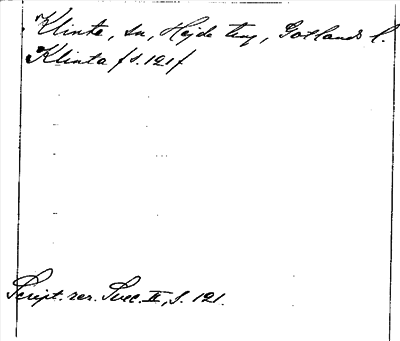 Klinte, sn, Hejde ting, Gotlands l.
Klinta /s. 121/
Script. rer. Svec. II, s. 121.